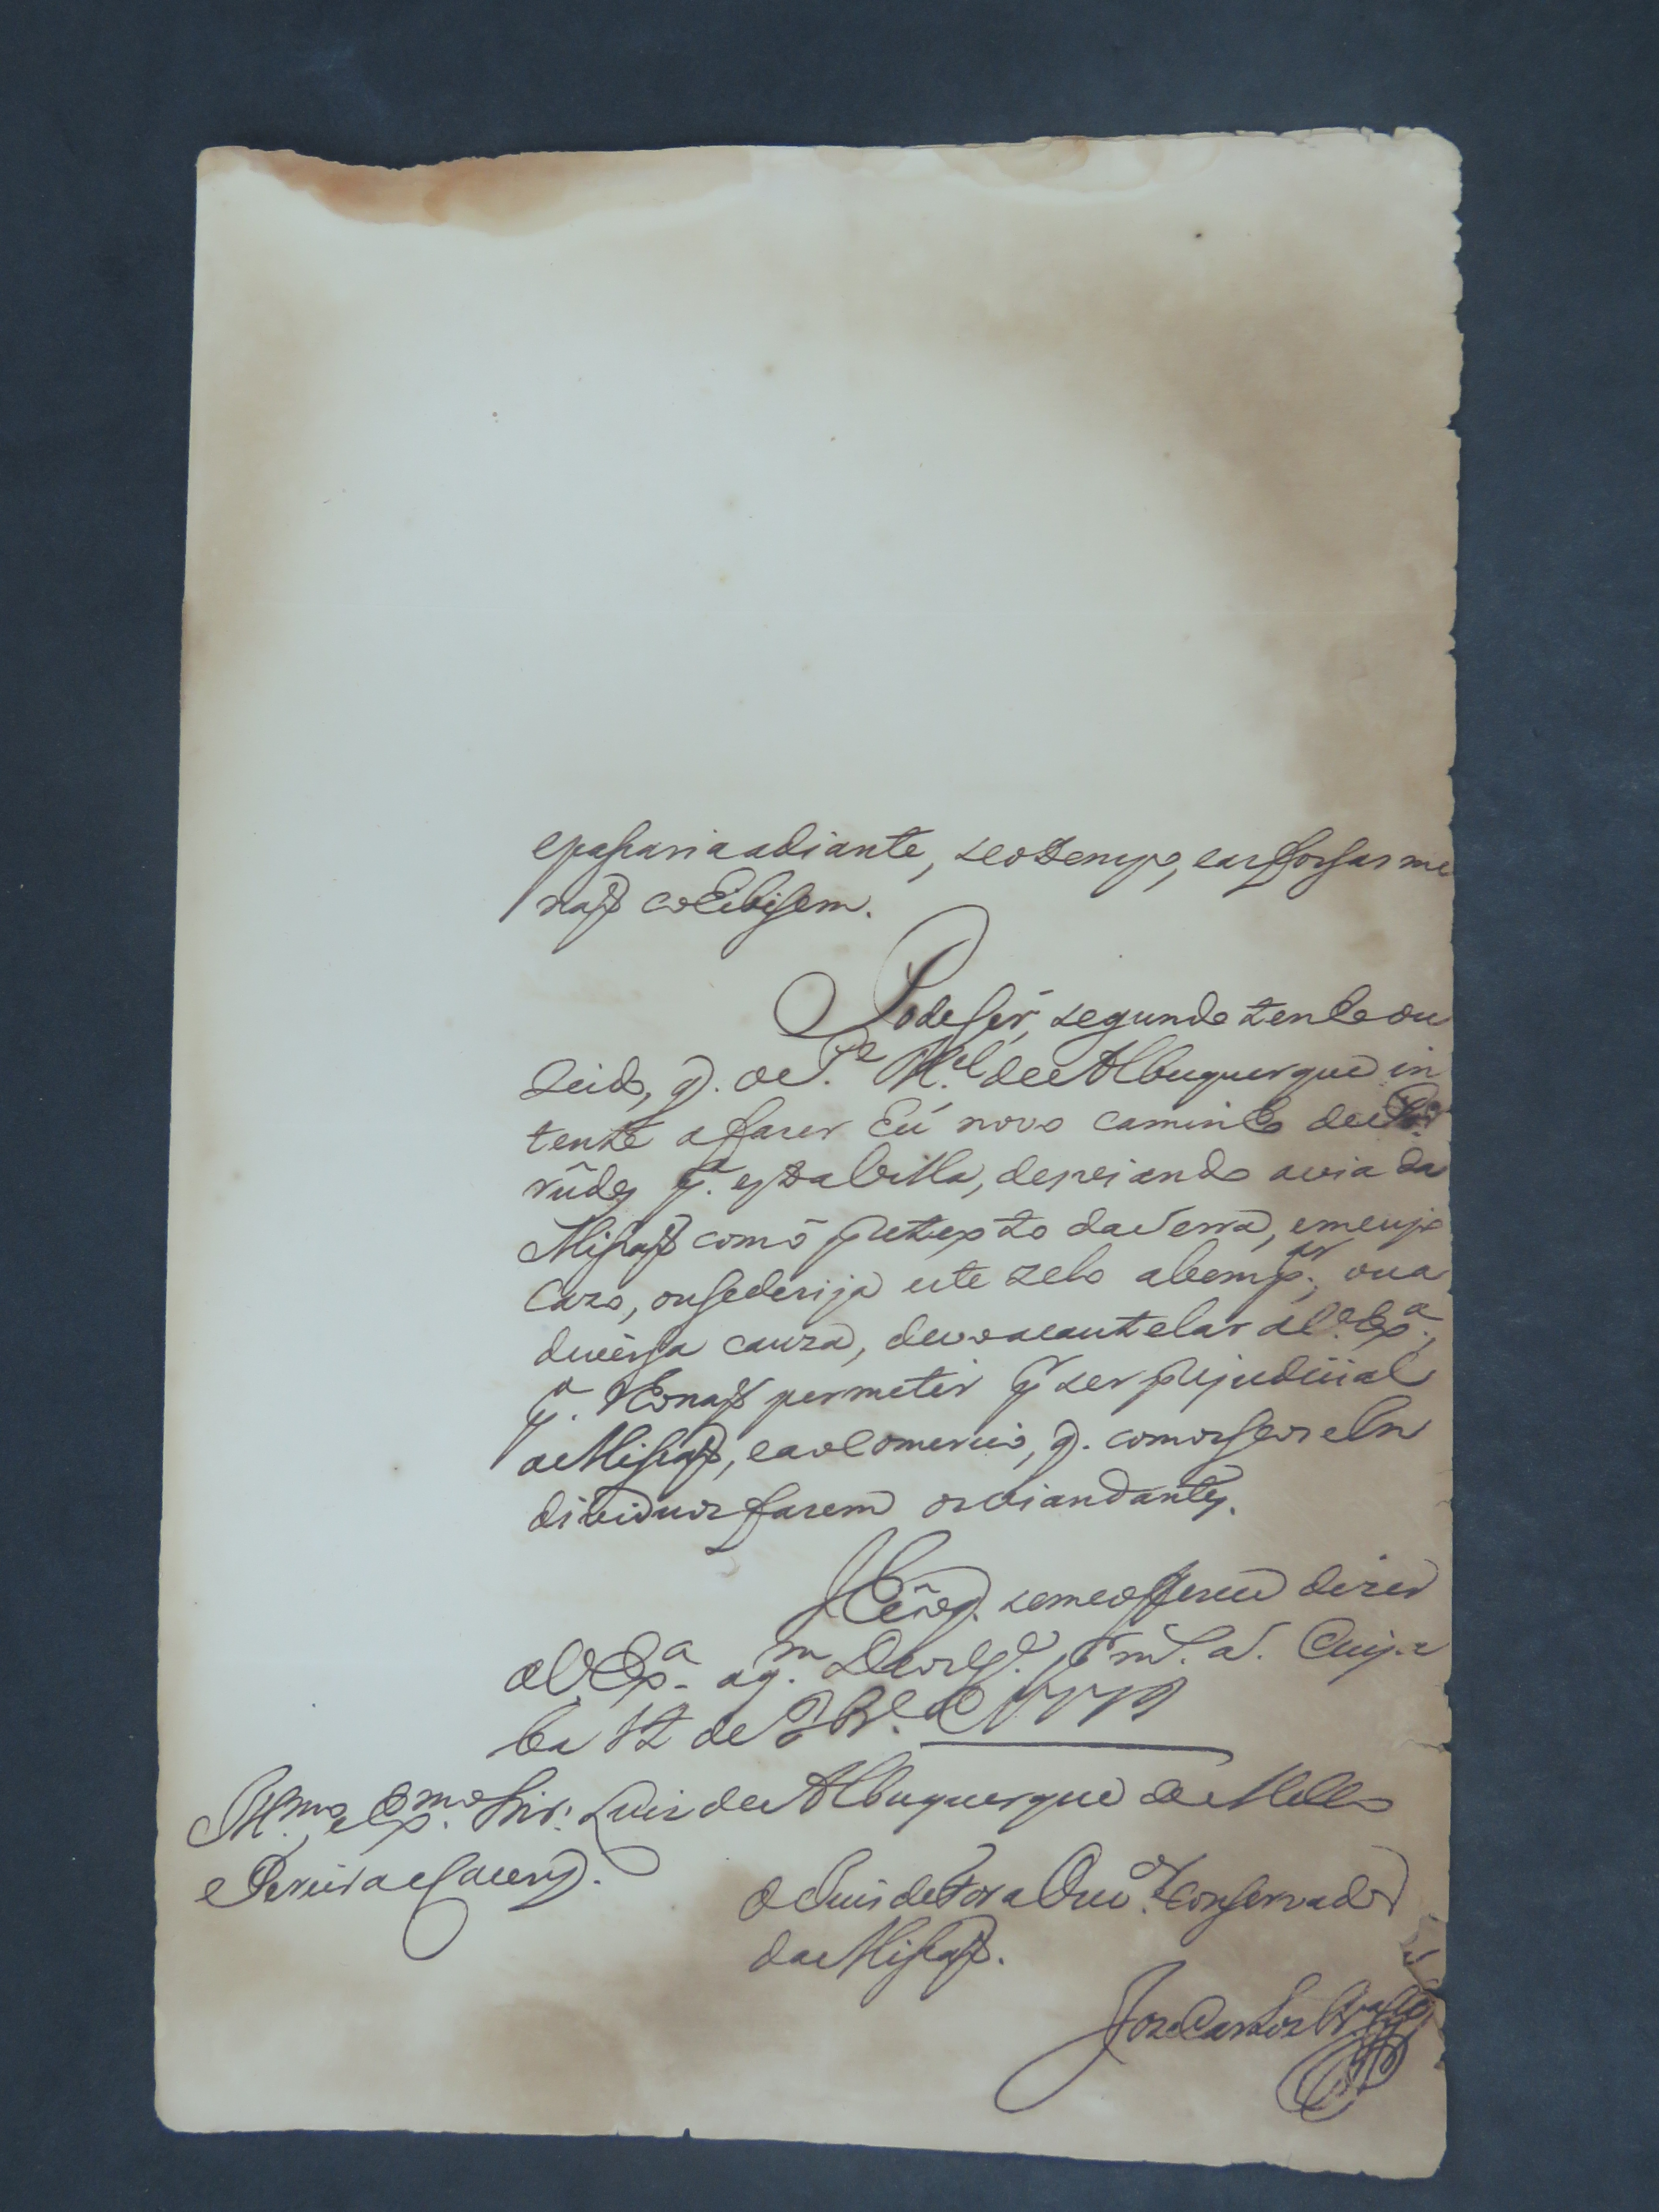 epassaria adiante, se o tempo, eas forsas me
naõ cohibisem.
Pode ser, segundo tenho ou
vido, q. o Cp.ᵉ M.ᵉˡ de Albuquerque in
tente a faser hũ novo caminho de
rũdes p.ª esta Villa, desviando a via da
Missaõ com o pretexto da Serra, em cujo
cazo, ou se derija este zelo a bem p.ʳ, ou a
diversa cauza, devo acautelar a V. Ex.ª,
p.ª o naõ permetir p.ʳ ser prejudicial
a Missaõ, e ao Comercio, q. com os seos In
dividuos fasem os viandantes.
He o q. se me offerece dizer
a V. Ex.ª a q.ᵐ Deos g.ᵉ p.ʳ m.ˢ a.ˢ Cuya
ba 12 de 7br.º de 1779
Ill.ᵐᵒ, e Ex.ᵐᵒ Snr. Luis de Albuquerque de Mello
e Pereira e Caceres.
O Juis de Fora Ouv.ᵒʳ Conservador
da Missaõ.
Joze Carlos Pr.ª